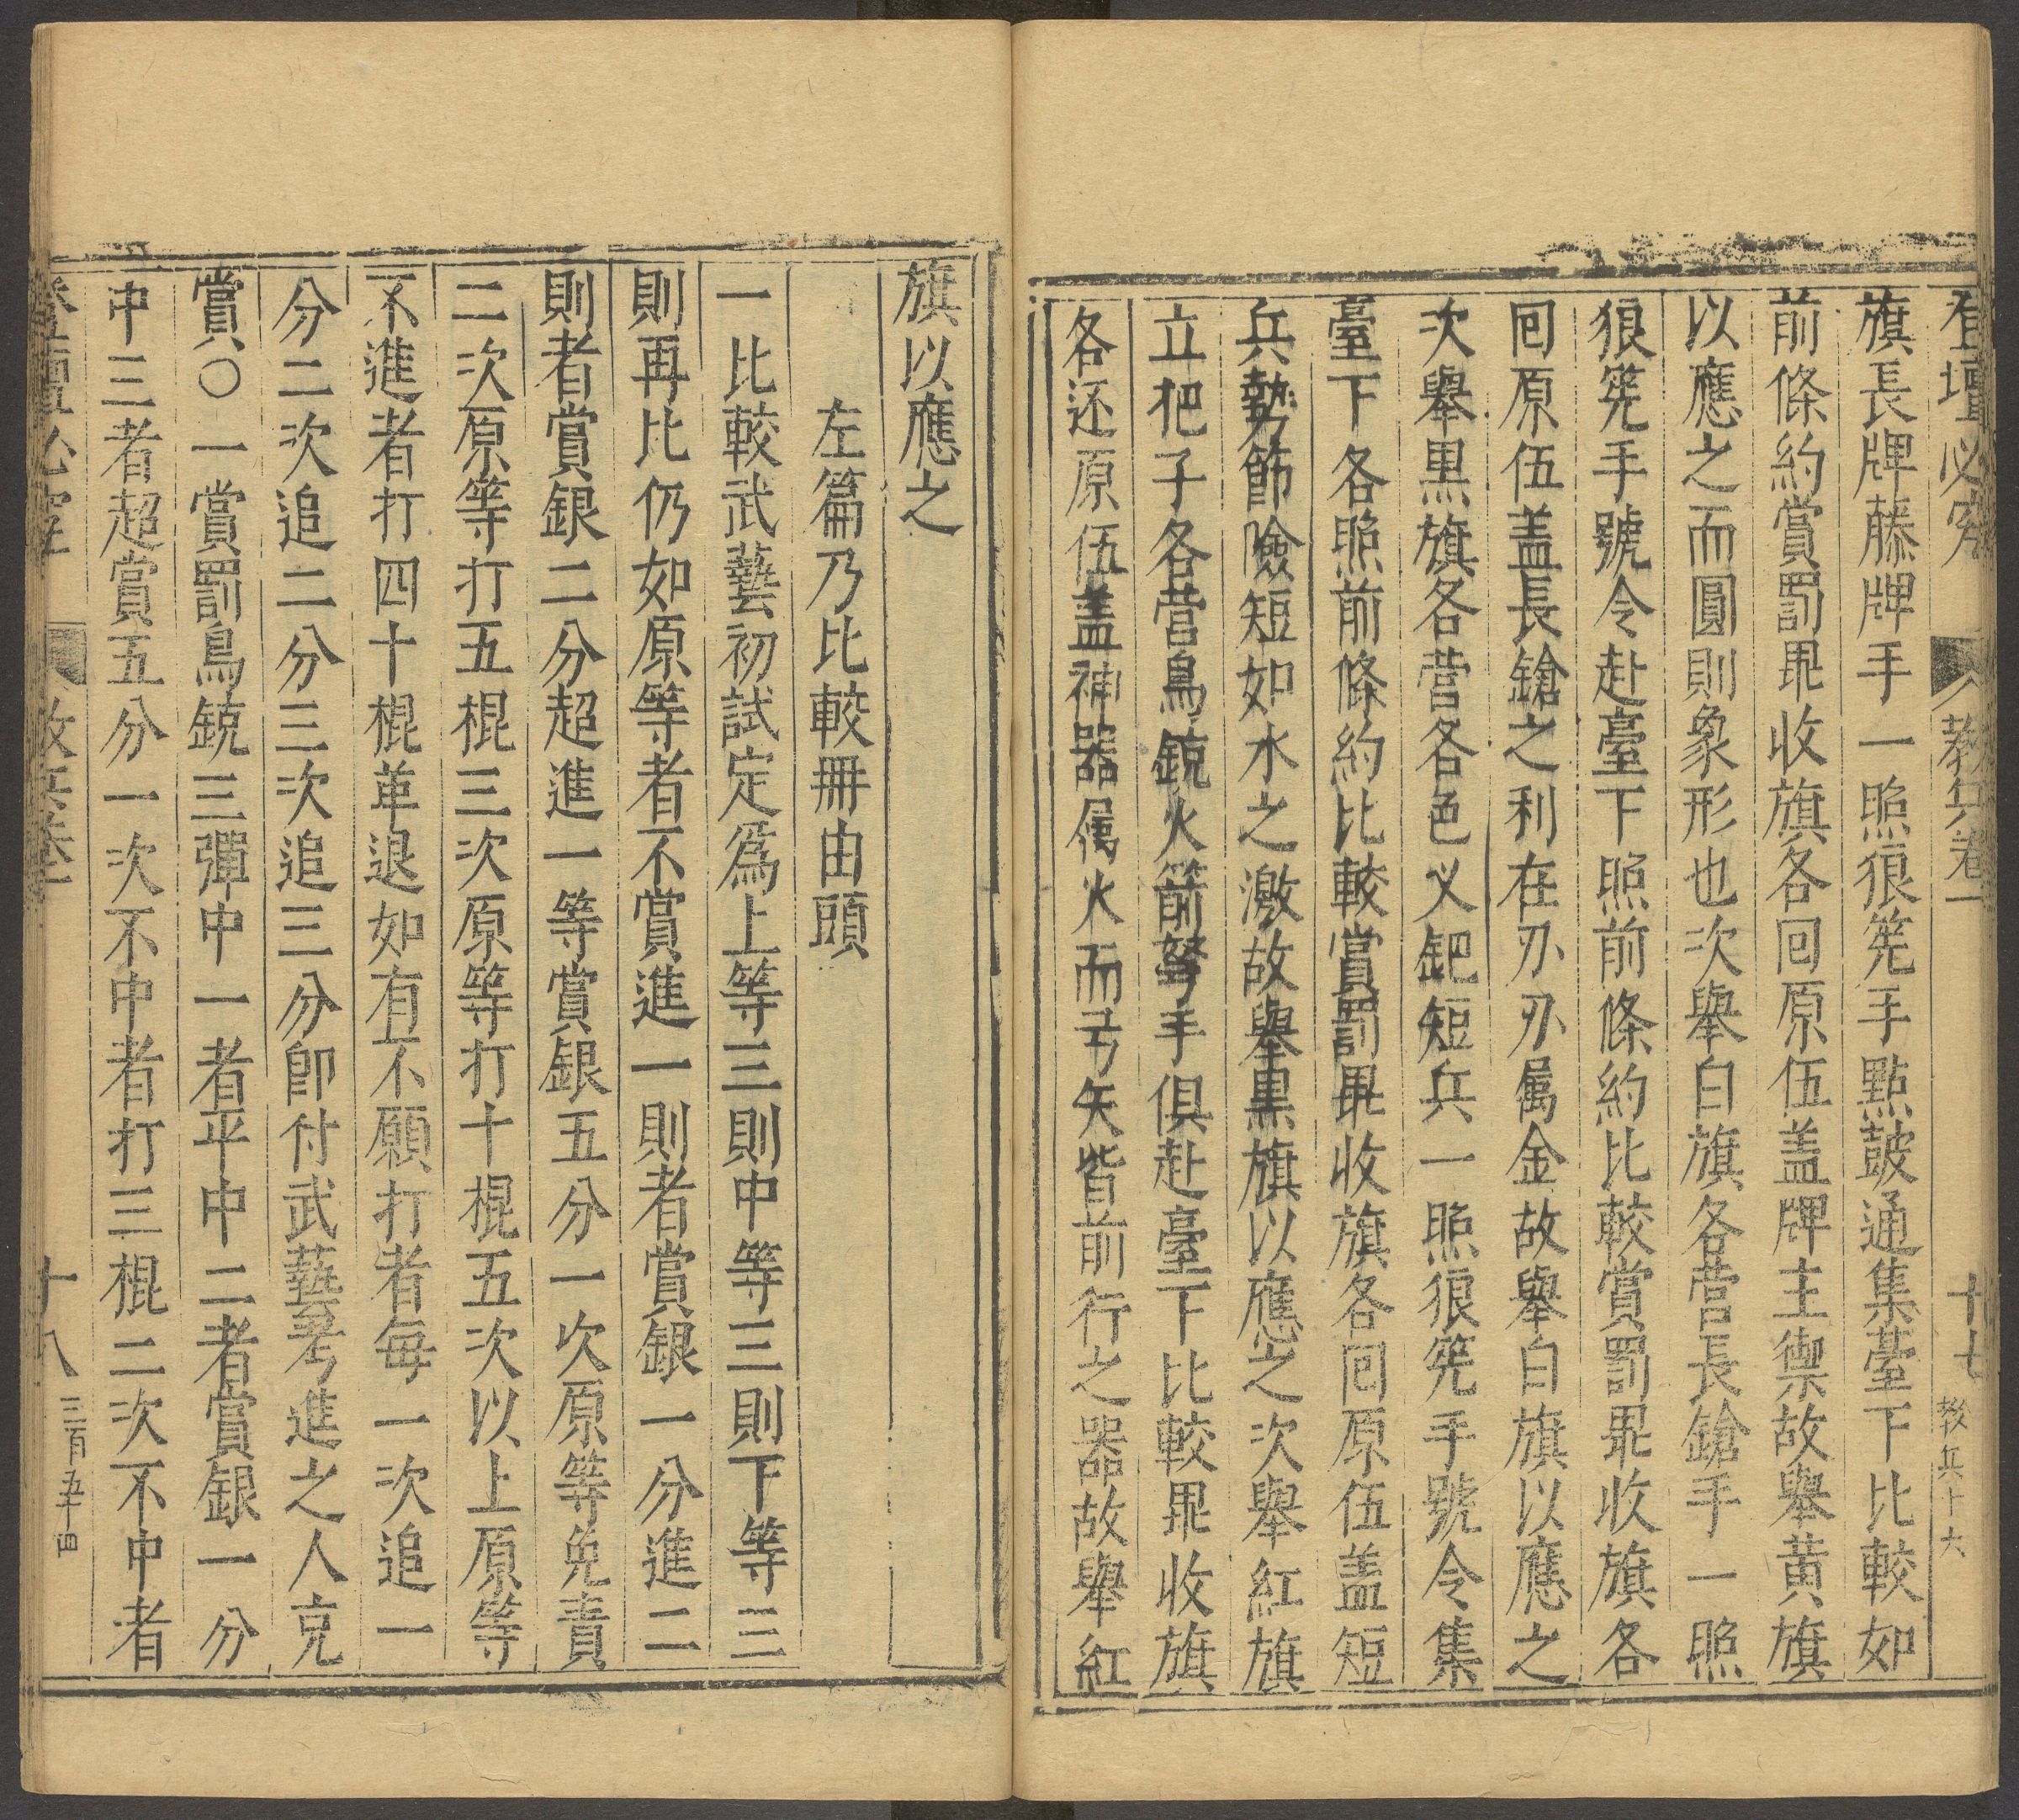 登壇必究 教兵卷一 十七 教兵十六
旗長牌藤牌手一照狼筅手點皷通集臺下比較如
前條約賞罰畢收旗各回原伍盖牌主禦故舉黃旗
以應之而圓則象形也次舉白旗各营長鎗手一照
狼筅手號令赴臺下照前條約比較賞罰畢收旗各
回原伍盖長鎗之利在刃刃属金故舉白旗以應之
次舉黒旗各营各色义鈀短兵一照狼筅手號令集
臺下各照前條約比較賞罰畢收旗各回原伍盖短
兵勢節險短如水之激故舉黒旗以應之次舉紅旗
立把子各营鳥銃火箭弩手俱赴臺下比較畢收旗
各还原伍盖神器属火而弓矢皆前行之器故舉紅
旗以應之
左篇乃比較冊由頭
一比較武藝初試定爲上等三則中等三則下等三
則再比仍如原等者不賞進一則者賞銀一分進二
則者賞銀二分超進一等賞銀五分一次原等免責
二次原等打五棍三次原等打十棍五次以上原等
不進者打四十棍革退如有不願打者每一次追一
分二次追二分三次追三分卽付武藝考進之人克
賞○一賞罰鳥銃三彈中一者平中二者賞銀一分
中三者超賞五分一次不中者打三棍二次不中者
登壇必究 教兵卷一 十八 三百五十四